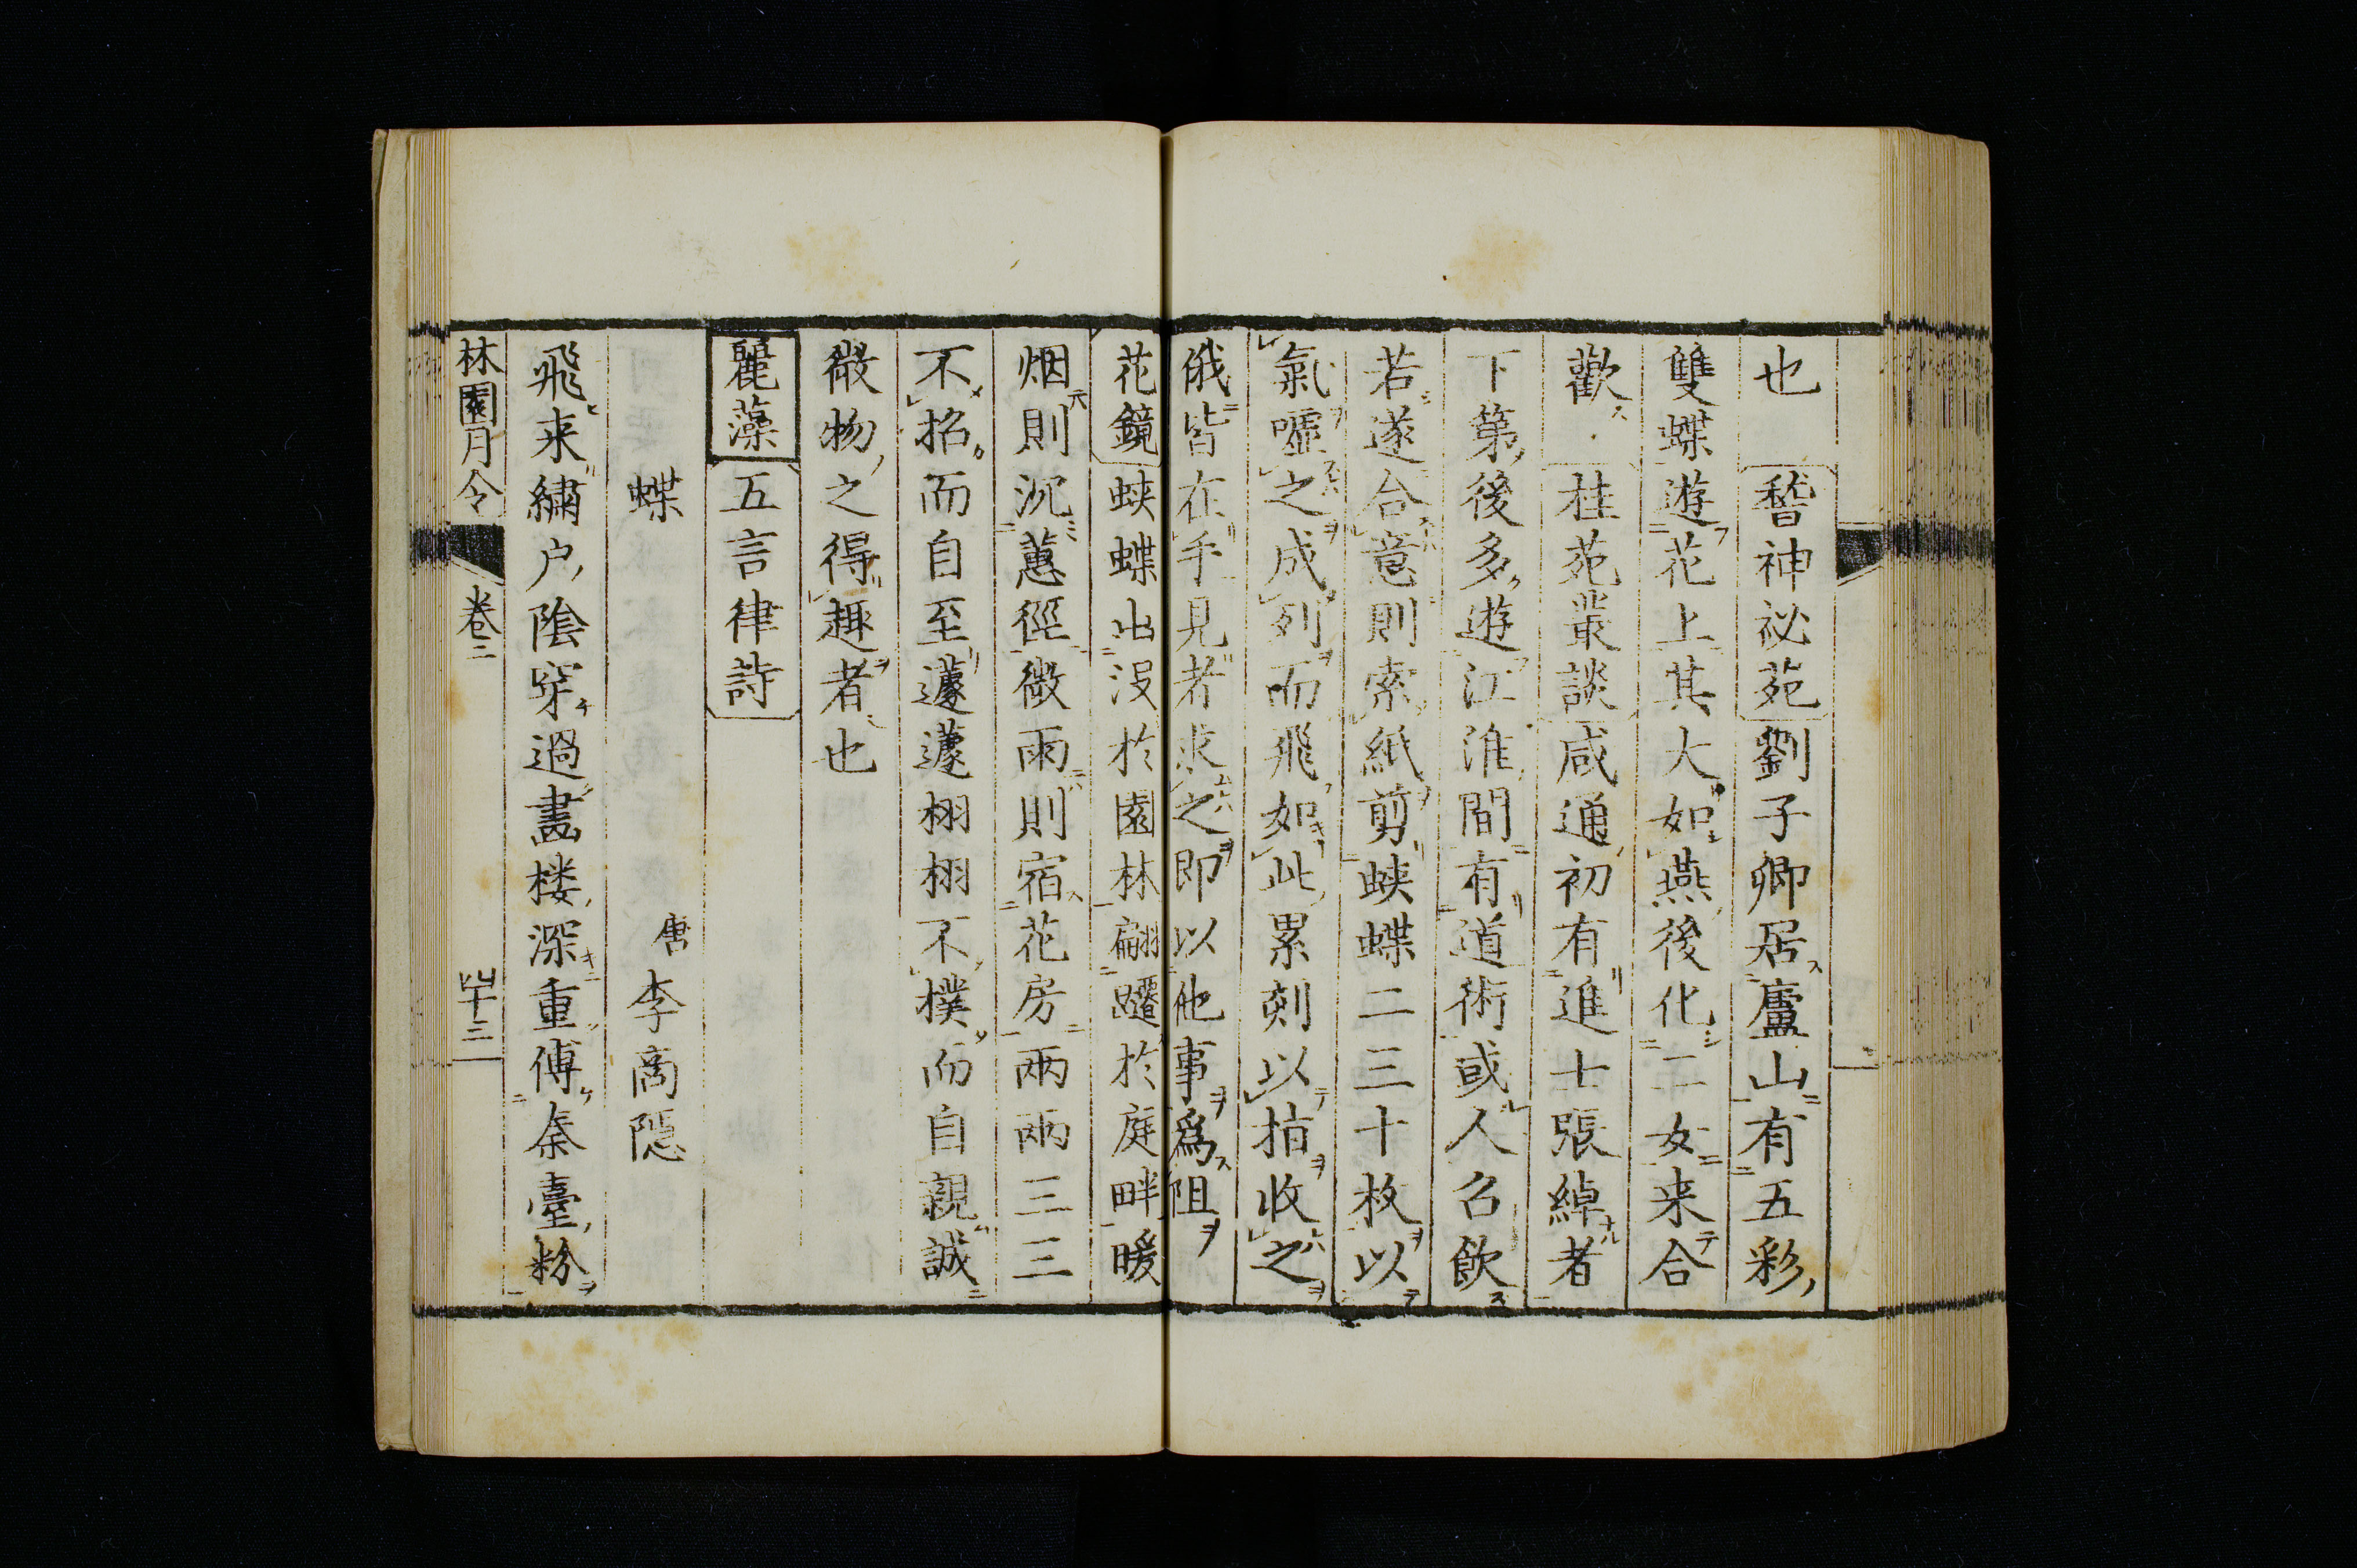 也　稽神祕苑劉子卿居廬山有五彩
雙蝶遊花上其大如燕後化二女来合
歡　桂苑叢談咸通初有進士張綽者
下第後多遊江淮間有道術或人召飲
若遂合意則索紙剪蛺蝶二三十枚以
氣嘘之成列而飛如此累刻以指收之
俄皆在手見者求之即以他事爲阻
花鏡蛺蝶出没於園林翩躚於庭畔暖
烟則沉蕙徑微雨則宿花房兩兩三三
不招而自至蘧蘧栩栩不撲而自親誠
微物之得趣者也
麗藻五言律詩
蝶　唐李商隠
飛来繡户陰穿過畫楼深重傅秦臺粉
林園月令　卷二　四十三